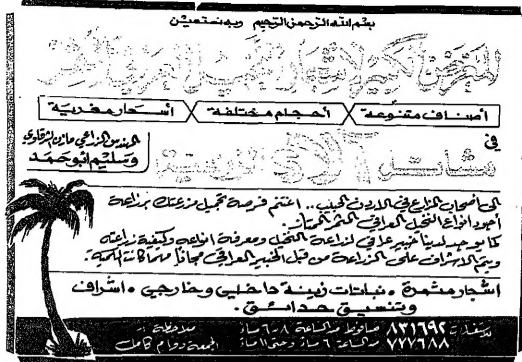 بسم الله الرحمن الرحيم وبه نستعين
المعرض الكبير لأشجار النخيل العراقي المثمر
أصناف متنوعة أحجام مختلفة أسعار مغرية
في
مشاتل
المهندس الزراعي مازن الشرقاوي
وسليم ابو حمد
الى أصحاب المزارع في الاردن الحبيب .. اغتنم فرصة تجميل مزرعتك بزراعة
أجود انواع النخيل العراقي المثمر الممتاز.
كما يوجد لدينا خبير عراقي لزراعة النخيل ومعرفة انواعه وكيفية زراعته
ويتم الاشراف على الزراعة من قبل الخبير العراقي مجاناً مهما كانت الكمية.
اشجار مثمرة . نباتات زينة داخلي وخارجي . اشراف
وتنسيق حدائق.
٨٣١٦٩٢ صافوط من الساعة ٨-٦ مساءً ملاحظة :
٧٧٧٦٨٨ من الساعة ٦ مساءً وحتى ١١ مساءً الجمعة دوام كامل